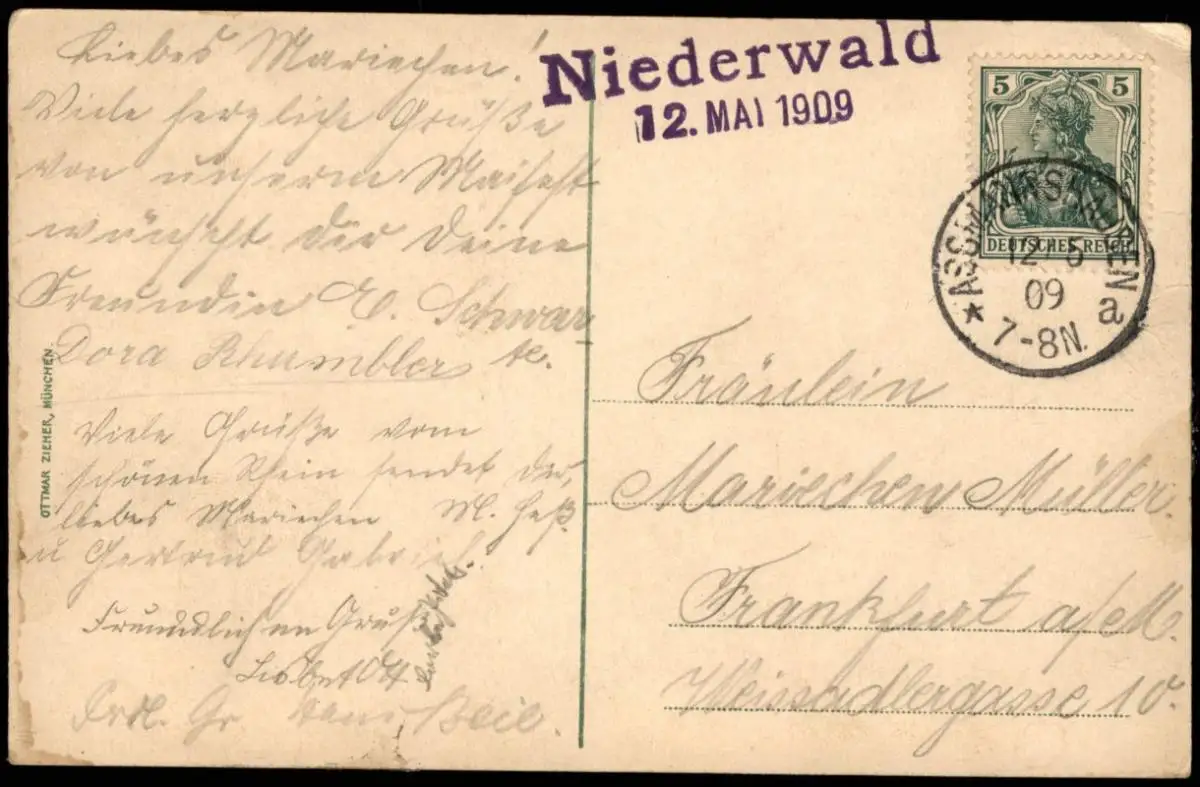 Liebes Mariechen!
Viele herzliche Grüße
von unserm Maifest
wünscht dir deine
Freundin E. Schwar
Dora Rhumbler
Viele Grüße vom
schönen Rhein sendet dir,
liebes Mariechen M. Heß
u Gertrud Gabriel.
Freundlichen Gruß
Lisbet Ott
Frdl. Gr.
OTTMAR ZIEHER, MÜNCHEN.
Niederwald
12. MAI 1909
5 5
DEUTSCHES REICH
* ASSMANNSHAUSEN a
12/5
09
7-8N.
Fräulein
Mariechen Müller.
Frankfurt a/M.
Weissadlergasse 10.